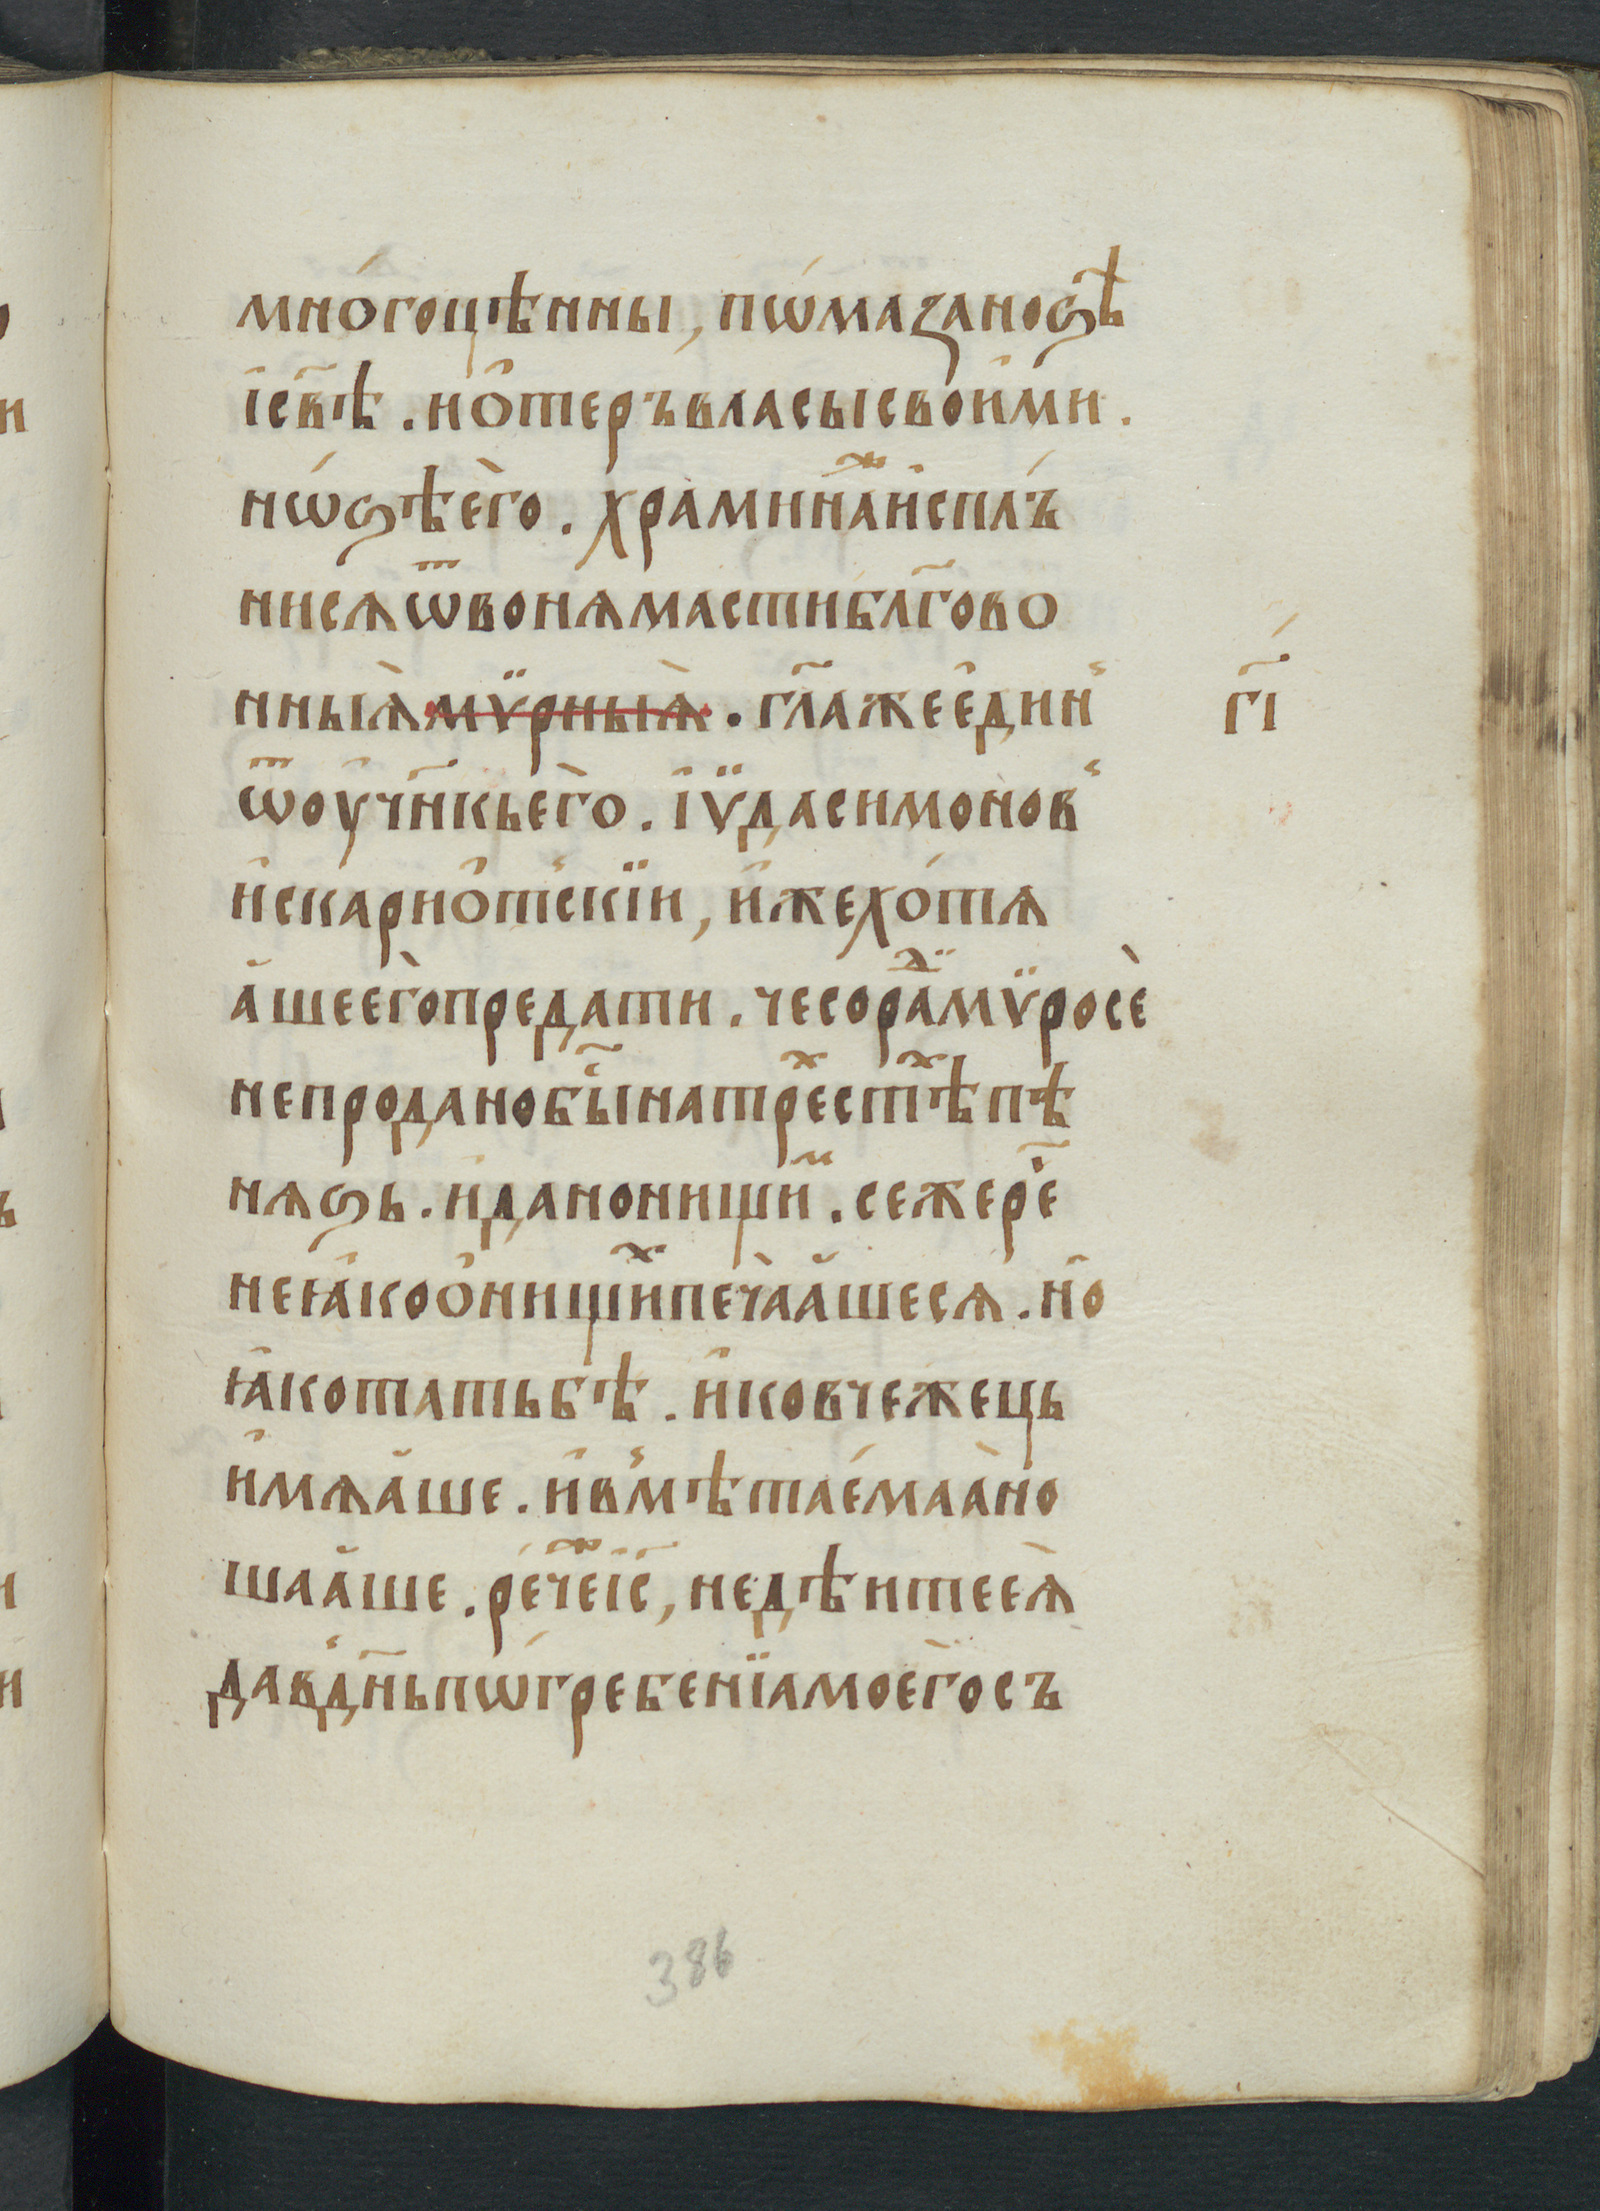 мно́гоцѣнны, пѡ́маза но́ѕѣ
і҆св҃ѣ . и҆ ѻ҆теръ власы свои҆ми .
нѡ́ѕѣ є҆го̀ . храмина́ж и҆спл́ъ
ни сѧ ѿ вонѧ масти бл҃гово
нныѧ̀ мѵ̈рныѧ̀ . гл҃а же є҆ди́нъ
гі҃
ѿ оу҆чн҃кь є҆го̀ . і҆ѵ̈да симоновъ
и҆скариѻ҆тскїи, и҆же хо́тѧ
а҆ше є҆го̀ предати . чесо рад̾ мѵ̈ро сѐ
не продано бы҃ на трех стѣх пѣ
нѧѕь . и҆ дано нищим . се же рѐ
не ꙗ҆ко ѻ҆ нищих печа̀а҆ше сѧ . но҆
ꙗ҆ко тать бѣ . и҆ ковчежець
и҆мѧа҆ше . и҆ вмѣта́є́маа̀ но
шаа҆ше . ре́че ж і҃с, не дѣите є҆ѧ̀
да в дн҃ь пѡ́гребенїа моє҆го̀ съ
386